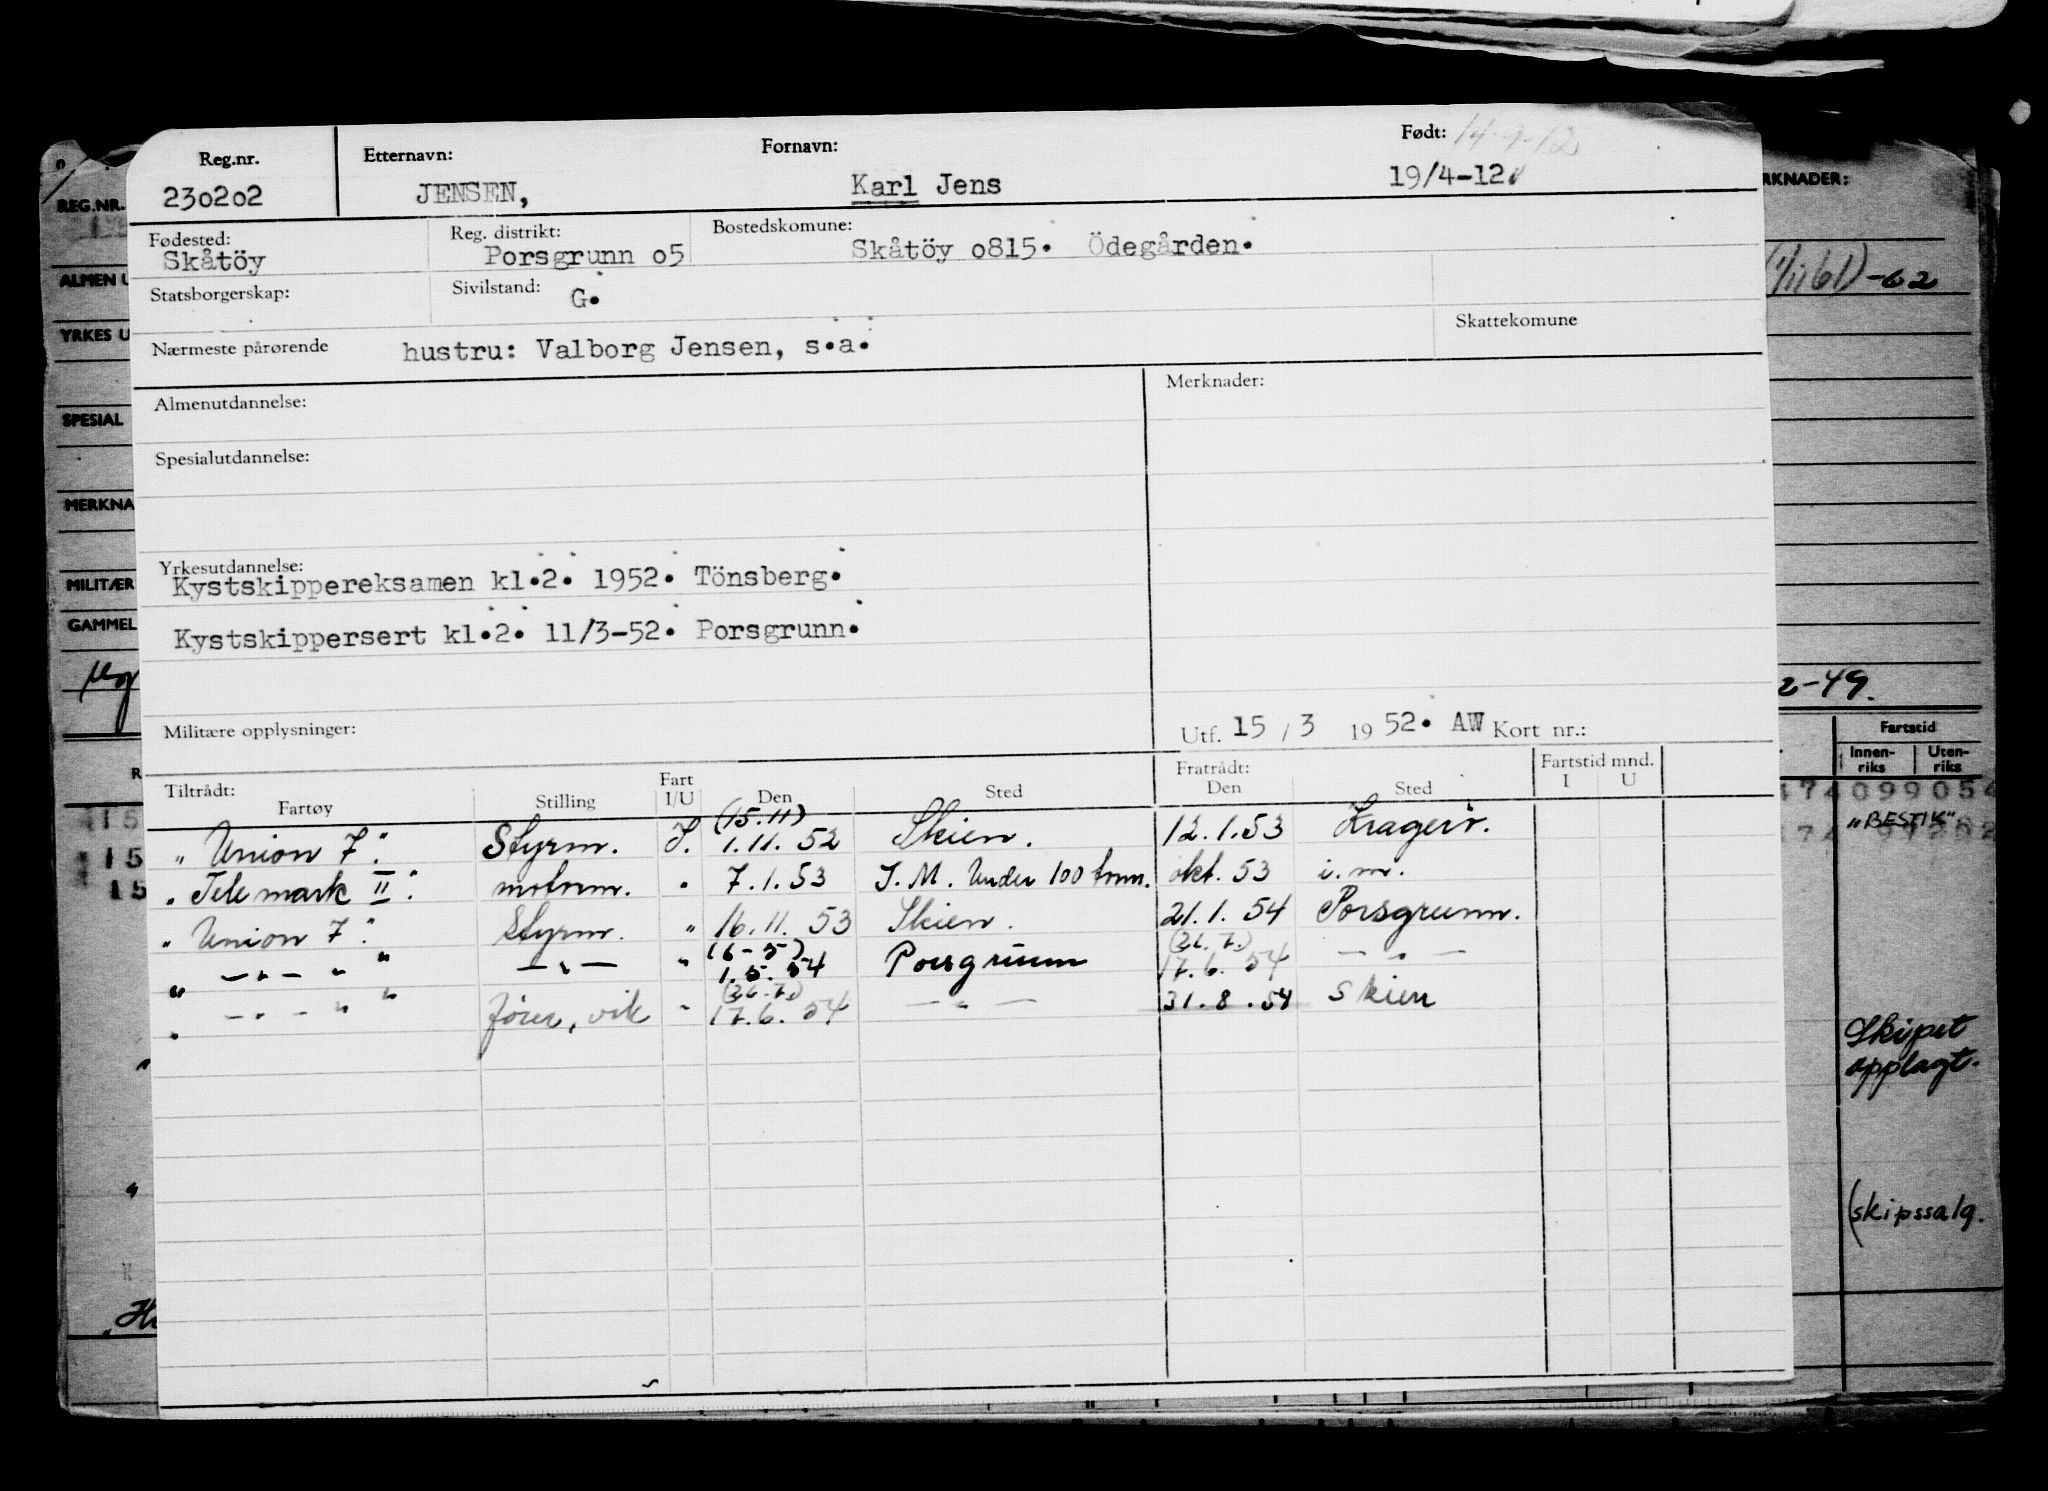 Reg.nr. Etternavn: Fornavn: Født: 14-9-12
230202 JENSEN, Karl Jens 19/4-12
Fødested: Reg. distrikt: Bostedskomune:
Skåtöy Porsgrunn 05 Skåtöy 0815. Ödegården.
Statsborgerskap: Sivilstand: G.
Nærmeste pårørende hustru: Valborg Jensen, s.a. Skattekomune
Almenutdannelse: Merknader:
Spesialutdannelse:
Yrkesutdannelse:
Kystskippereksamen kl.2. 1952. Tönsberg.
Kystskippersert kl.2. 11/3-52. Porsgrunn.
Militære opplysninger: Utf. 15/3 1952. AW Kort nr.:
Tiltrådt: Fratrådt: Fartstid mnd.
Fartøy Stilling Fart I/U Den Sted Den Sted I U
(15.11)
"Union 7". Styrm. I. 1.11.52 Skien. 12.1.53 Kragerö.
"Telemark II". motorm. " 7.1.53 I.M. Under 100 tonn. okt. 53 i.m.
"Union 7". Styrm. " 16.11.53 Skien. 21.1.54 Porsgrunn.
(6-5) (26.7.)
" — " — " " — " — " 1.5.54 Porsgrunn 17.6.54 — " —
(26.7.)
" — " — " " fører, vik " 17.6.54 — " — 31.8.54 Skien
REG.NR.
ALMEN U
YRKES U
SPESIAL
MERKNA
MILITÆR
GAMMEL
RKNADER:
(1/11 61) -62
2-49.
Fartstid
Innen-riks Uten-riks
474099054
"BESTIK"
15
15
15
Skipet
opplagt.
(skipssalg.